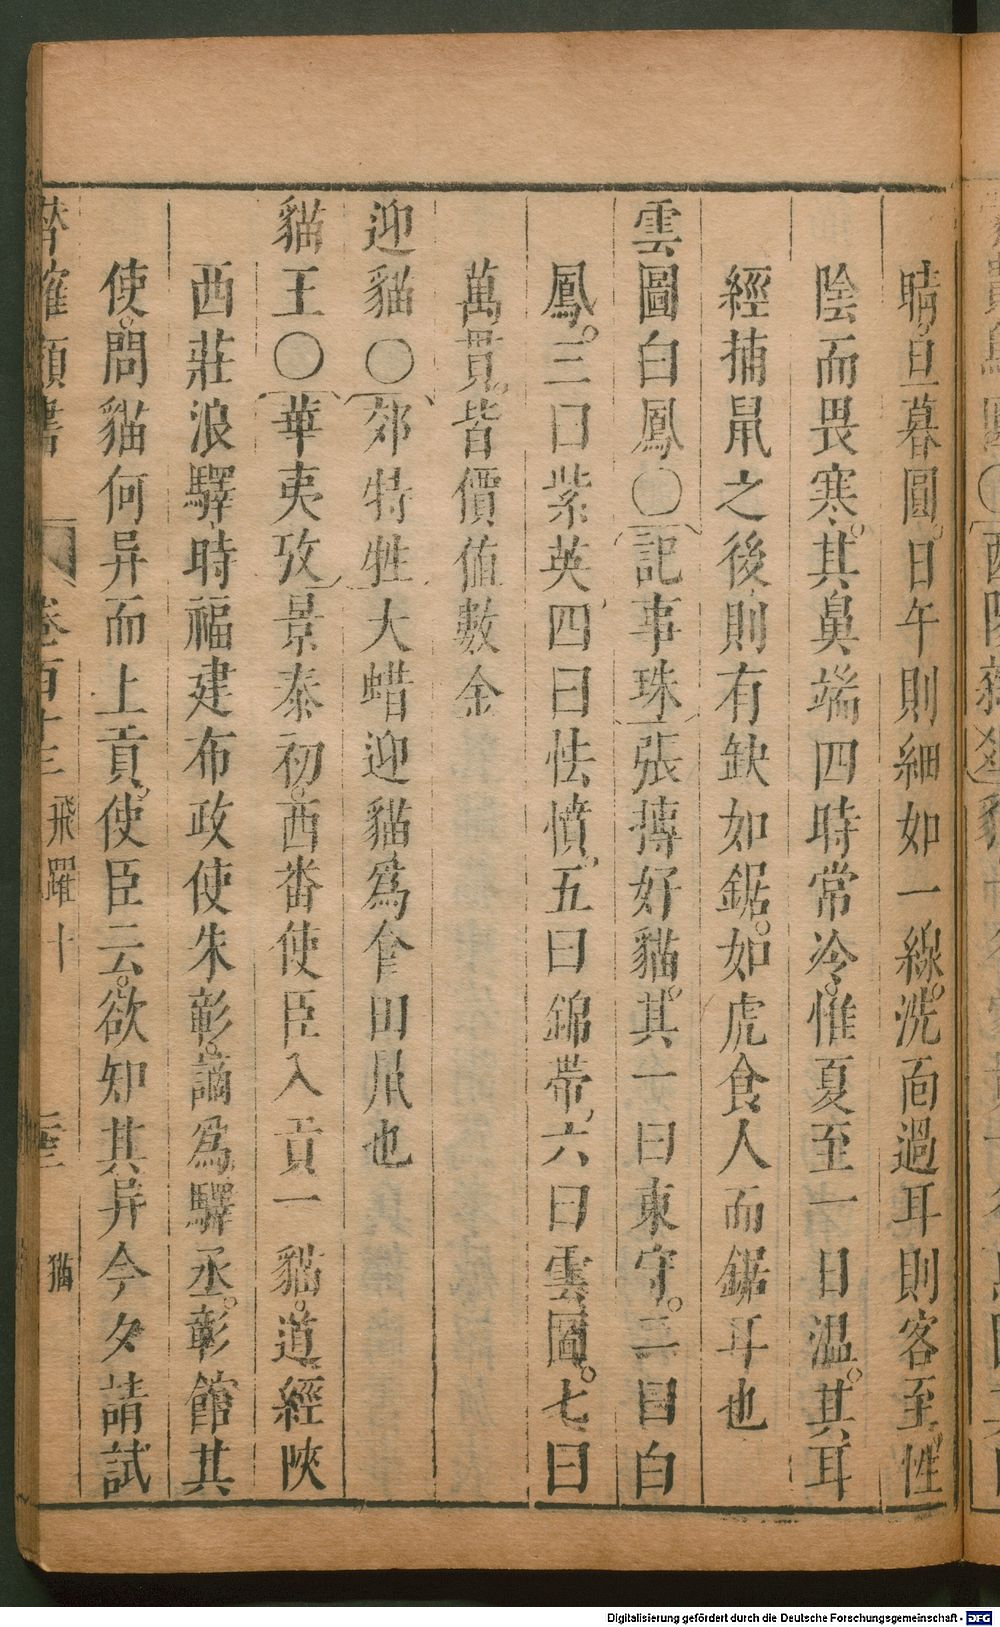 睛旦暮圓日午則細如一線洗面過耳則客至性
陰而畏寒其鼻端四時常冷惟夏至一日温其耳
經捕鼠之後則有缺如鋸如虎食人而鋸耳也
雲圖白鳳○記事珠張摶好貓其一曰東守二曰白
鳳三曰紫英四曰怯憤五曰錦帶六曰雲圖七曰
萬貫皆價值數金
迎貓○郊特牲大蜡迎貓爲食田鼠也
貓王○華夷攷景泰初西番使臣入貢一貓道經陜
西莊浪驛時福建布政使朱彰謫爲驛丞彰館其
使問貓何异而上貢使臣云欲知其异今夕請試
類書 卷百十三 飛躍十 猫
Digitalisierung gefördert durch die Deutsche Forschungsgemeinschaft - DFG